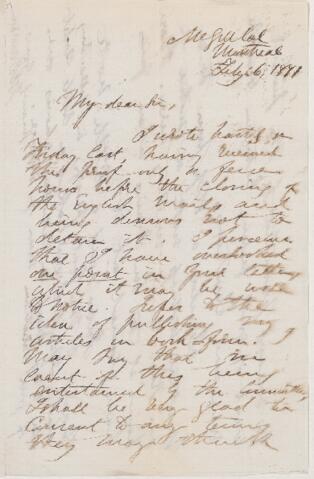 McGill Col
Montreal
Feby 6, 1881
My dear Sir,
I wrote hastily on
Friday last, having received
the proof only a few
hours before the closing of
the English mails and
being desirous not to
detain it. I perceive
that I have overlooked
one point in your letter
which it may be well
to notice. Refer to the
idea of publishing my
articles in book form. I
may say that in
case of this being
entertained by the
I shall be very glad to
consent to any terms
they may think